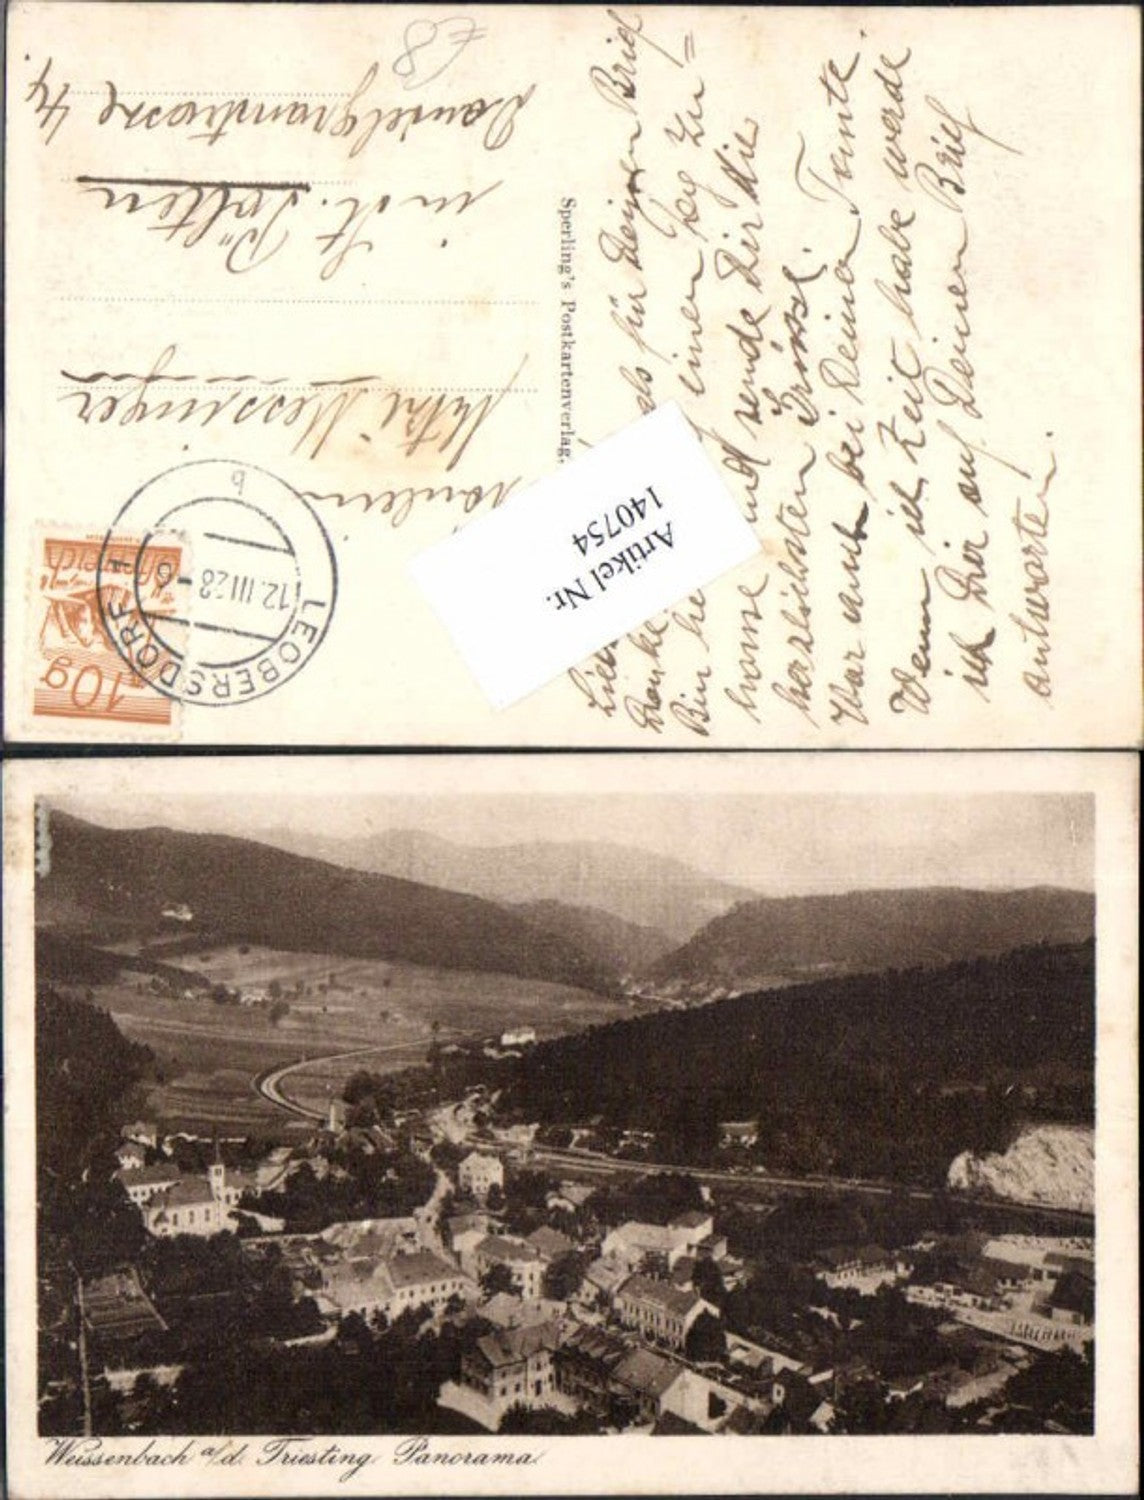 £8
Fräulein
Mitzi Messinger
in St. Pölten
Daniel Granstrasse 44.
Österreich
10g
LEOBERSDORF 1
12.III.28-6
b
Sperling's Postkartenverlag,
Artikel Nr.
140754
für Deinen Brief
Bin einen Tag zu=
hause und sende Dir die
herzlichsten Grüsse.
War auch bei Deiner Tante.
Wenn ich Zeit habe werde
ich Dir auf Deinen Brief
antworten.
Weissenbach a/d. Triesting Panorama